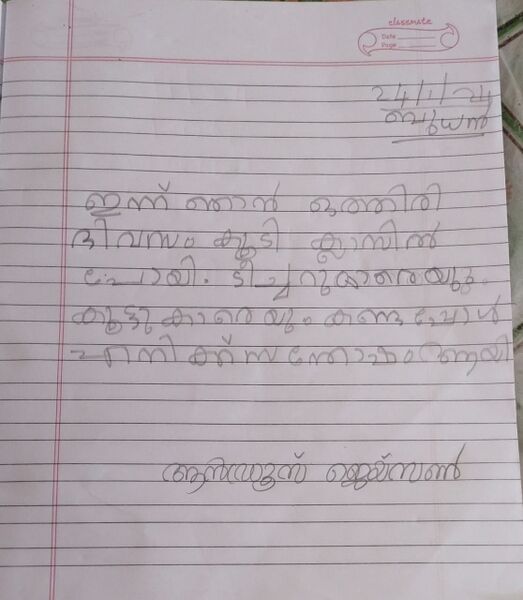 classmate
Date
Page
24/1/24
ബുധൻ
ഇന്ന് ഞാൻ ഒത്തിരി
ദിവസം കൂടി ക്ലാസിൽ
പോയി. ടീച്ചറുമാരെയും
കൂട്ടുകാരെയും കണ്ടപ്പോൾ
എനിക്ക് സന്തോഷം ആയി
ജെയ്സൺ